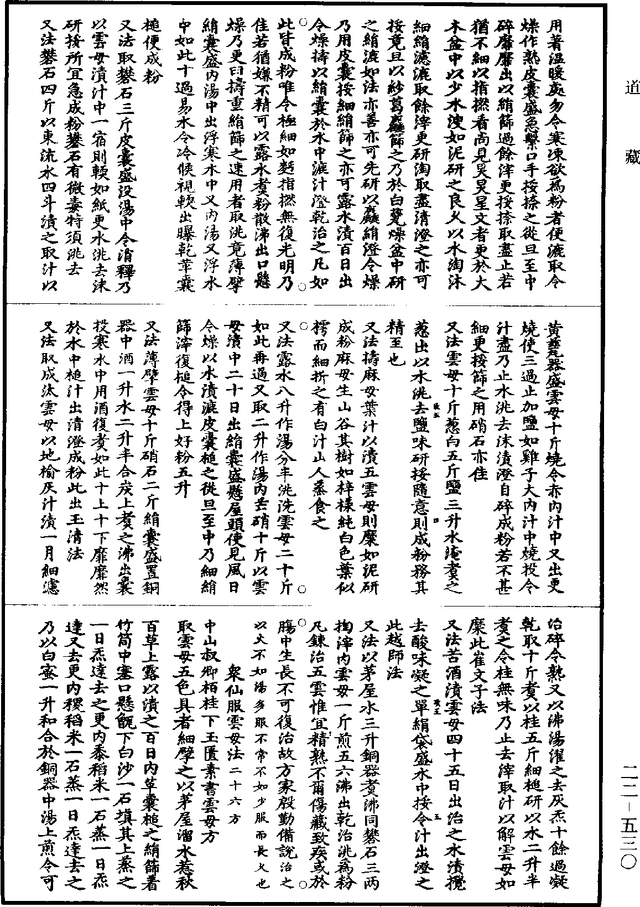 道藏
用著溫暖處勿令寒凍欲為粉者便漉取令
燥作熟皮囊盛急繫口手挼捺之從旦至中
碎靡靡出以絹篩過餘滓更挼捺取盡止若
猶不細以指撚看尚見炅炅星文者更於大
木盆中以少水溲如泥研之良久以水淘沐
細絹濾漉取餘滓更研淘取盡清澄之亦可
挼竟且以紗葛麤篩之乃於白甆燥盆中研
之絹漉如法亦善亦可先研以麤絹澄令燥
乃用皮囊挼細絹篩之亦可露水漬百日出
令燥擣以絹囊於水中漉汁澄乾治之凡如
此皆成粉唯令極細如麪指撚無復光明乃
佳若猶嫌不精可以露水煮粉散沸出口懸
燥乃更臼擣重絹篩之速用者取洮竟薄擘
絹囊盛內湯中出浮寒水中又內湯又浮水
中如此十過易水令冷候視輭出曝乾革囊
槌便成粉
又法取礬石三斤皮囊盛沒湯中令消釋乃
以雲母漬汁中一宿則輭如紙更水洮去沫
研挼所宜急成粉礬石有微毒特須洮去
又法礬石四斤以東流水四斗漬之取汁以
黄甆器盛雲母十斤燒令赤內汁中又出更
燒使三過止加鹽如雞子大內汁中燒投令
汁盡乃止水洮去沫漬澄自碎成粉若不甚
細更挼篩之用硝石亦佳
又法雲母十斤葱白五斤鹽三升水淹煮之
葱出以水洮去鹽味研挼隨意則成粉務其
精至也
又法擣麻母葉汁以漬五雲母則糜如泥研
成粉麻母生山谷其樹如梓樣純白色葉似
樗而細折之有白汁山人蒸食之
又法露水八升作湯分半洮洗雲母二十斤
如此再過又取二升作湯內芒硝十斤以雲
母漬中二十日出絹囊盛懸屋頭使見風日
令燥以水漬漉皮囊槌之從旦至中乃細絹
篩滓復槌令得上好粉五升
又法薄擘雲母十斤硝石二斤絹囊盛置銅
器中酒一升水二升半合炭上煮之沸出囊
投寒水中用酒復煮如此十上十下靡靡然
於水中槌汁出清澄成粉此出玉清法
又法取成汰雲母以地榆灰汁漬一月細濾
治碎令熟又以沸湯濯之去灰炁十餘過凝
乾取十斤煮以桂五斤細槌研以水二升半
煮之令桂無味乃止去滓取汁以解雲母如
糜此崔文子法
又法苦酒漬雲母四十五日出治之水漬攪
去酸味凝之單絹袋盛水中挼令汁出澄之
此越師法
又法以茅屋水三升銅器煮沸同礬石三兩
掏滓內雲母一斤煎五六沸出乾治洮為粉
凡鍊治五雲惟宜精熟不爾傷藏致疾或於
腸中生長不可復治故方家殷勤備說治之
以火不如湯多服不常不如少服而長久也
衆仙服雲母法二十六方
中山叔卿栢桂下玉匱素書雲母方
取雲母五色具者細擘之以茅屋溜水若秋
百草上露以漬之百日內草囊槌之絹篩著
竹筒中塞口懸甑下白沙一石填其上蒸之
一日炁達去之更內黍稻米一石蒸一日炁
達又去更內稷稻米一石蒸一日炁達去之
乃以白蜜一升和合於銅器中湯上煎令可
二二—五三〇